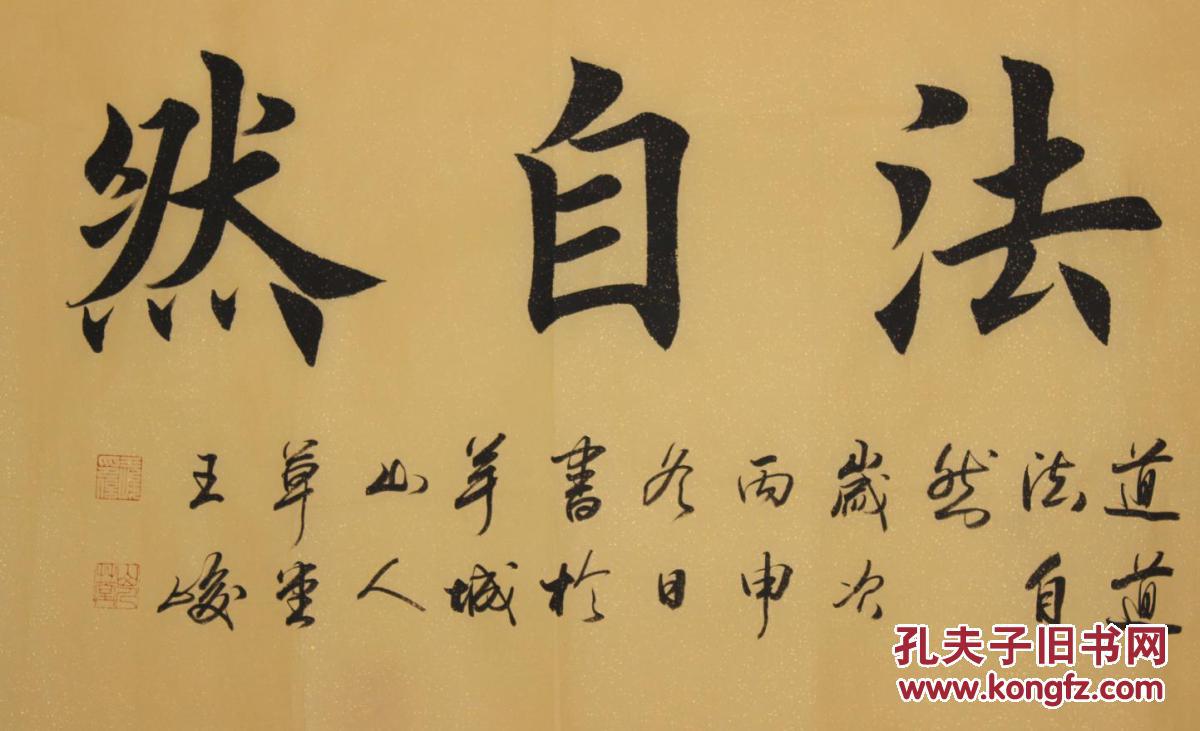 法自然
道道
法自
然
歲次
丙申
冬日
書於
羊城
山人
草堂
王峻
孔夫子旧书网
www.kongfz.com